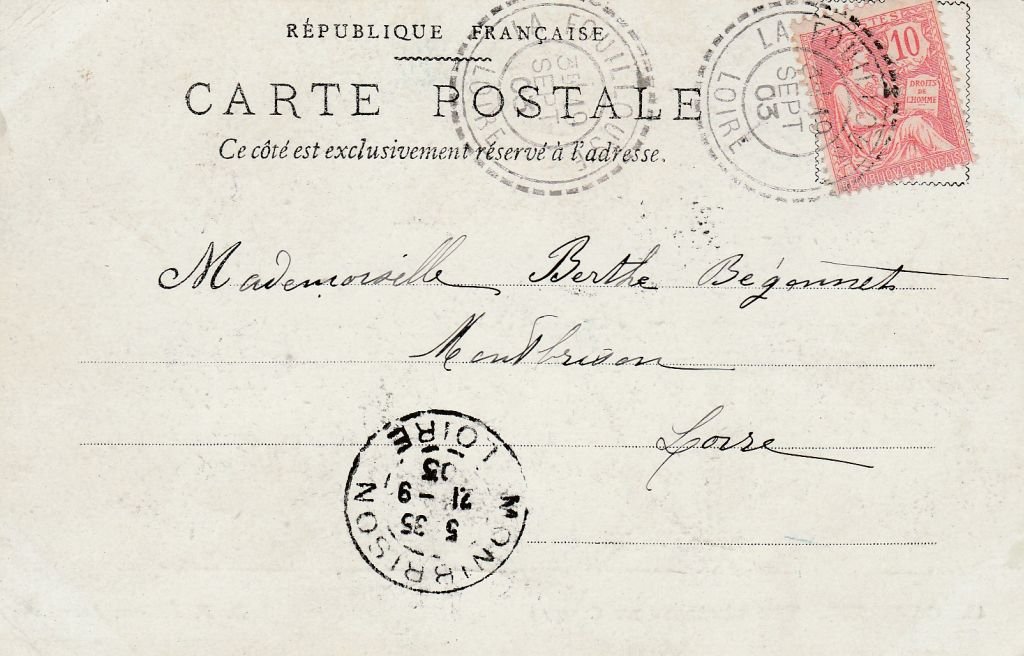 RÉPUBLIQUE FRANÇAISE
CARTE POSTALE
Ce côté est exclusivement réservé à l'adresse.
LA FOUILLOUSE
19
SEPT
03
LOIRE
LA FOUILLOUSE
19
SEPT
03
LOIRE
POSTES
10
DROITS
DE
L'HOMME
REPUBLIQUE FRANÇAISE
Mademoiselle Berthe Bégonnet
Montbrison
Loire
MONTBRISON
5 35
21 - 9
03
LOIRE